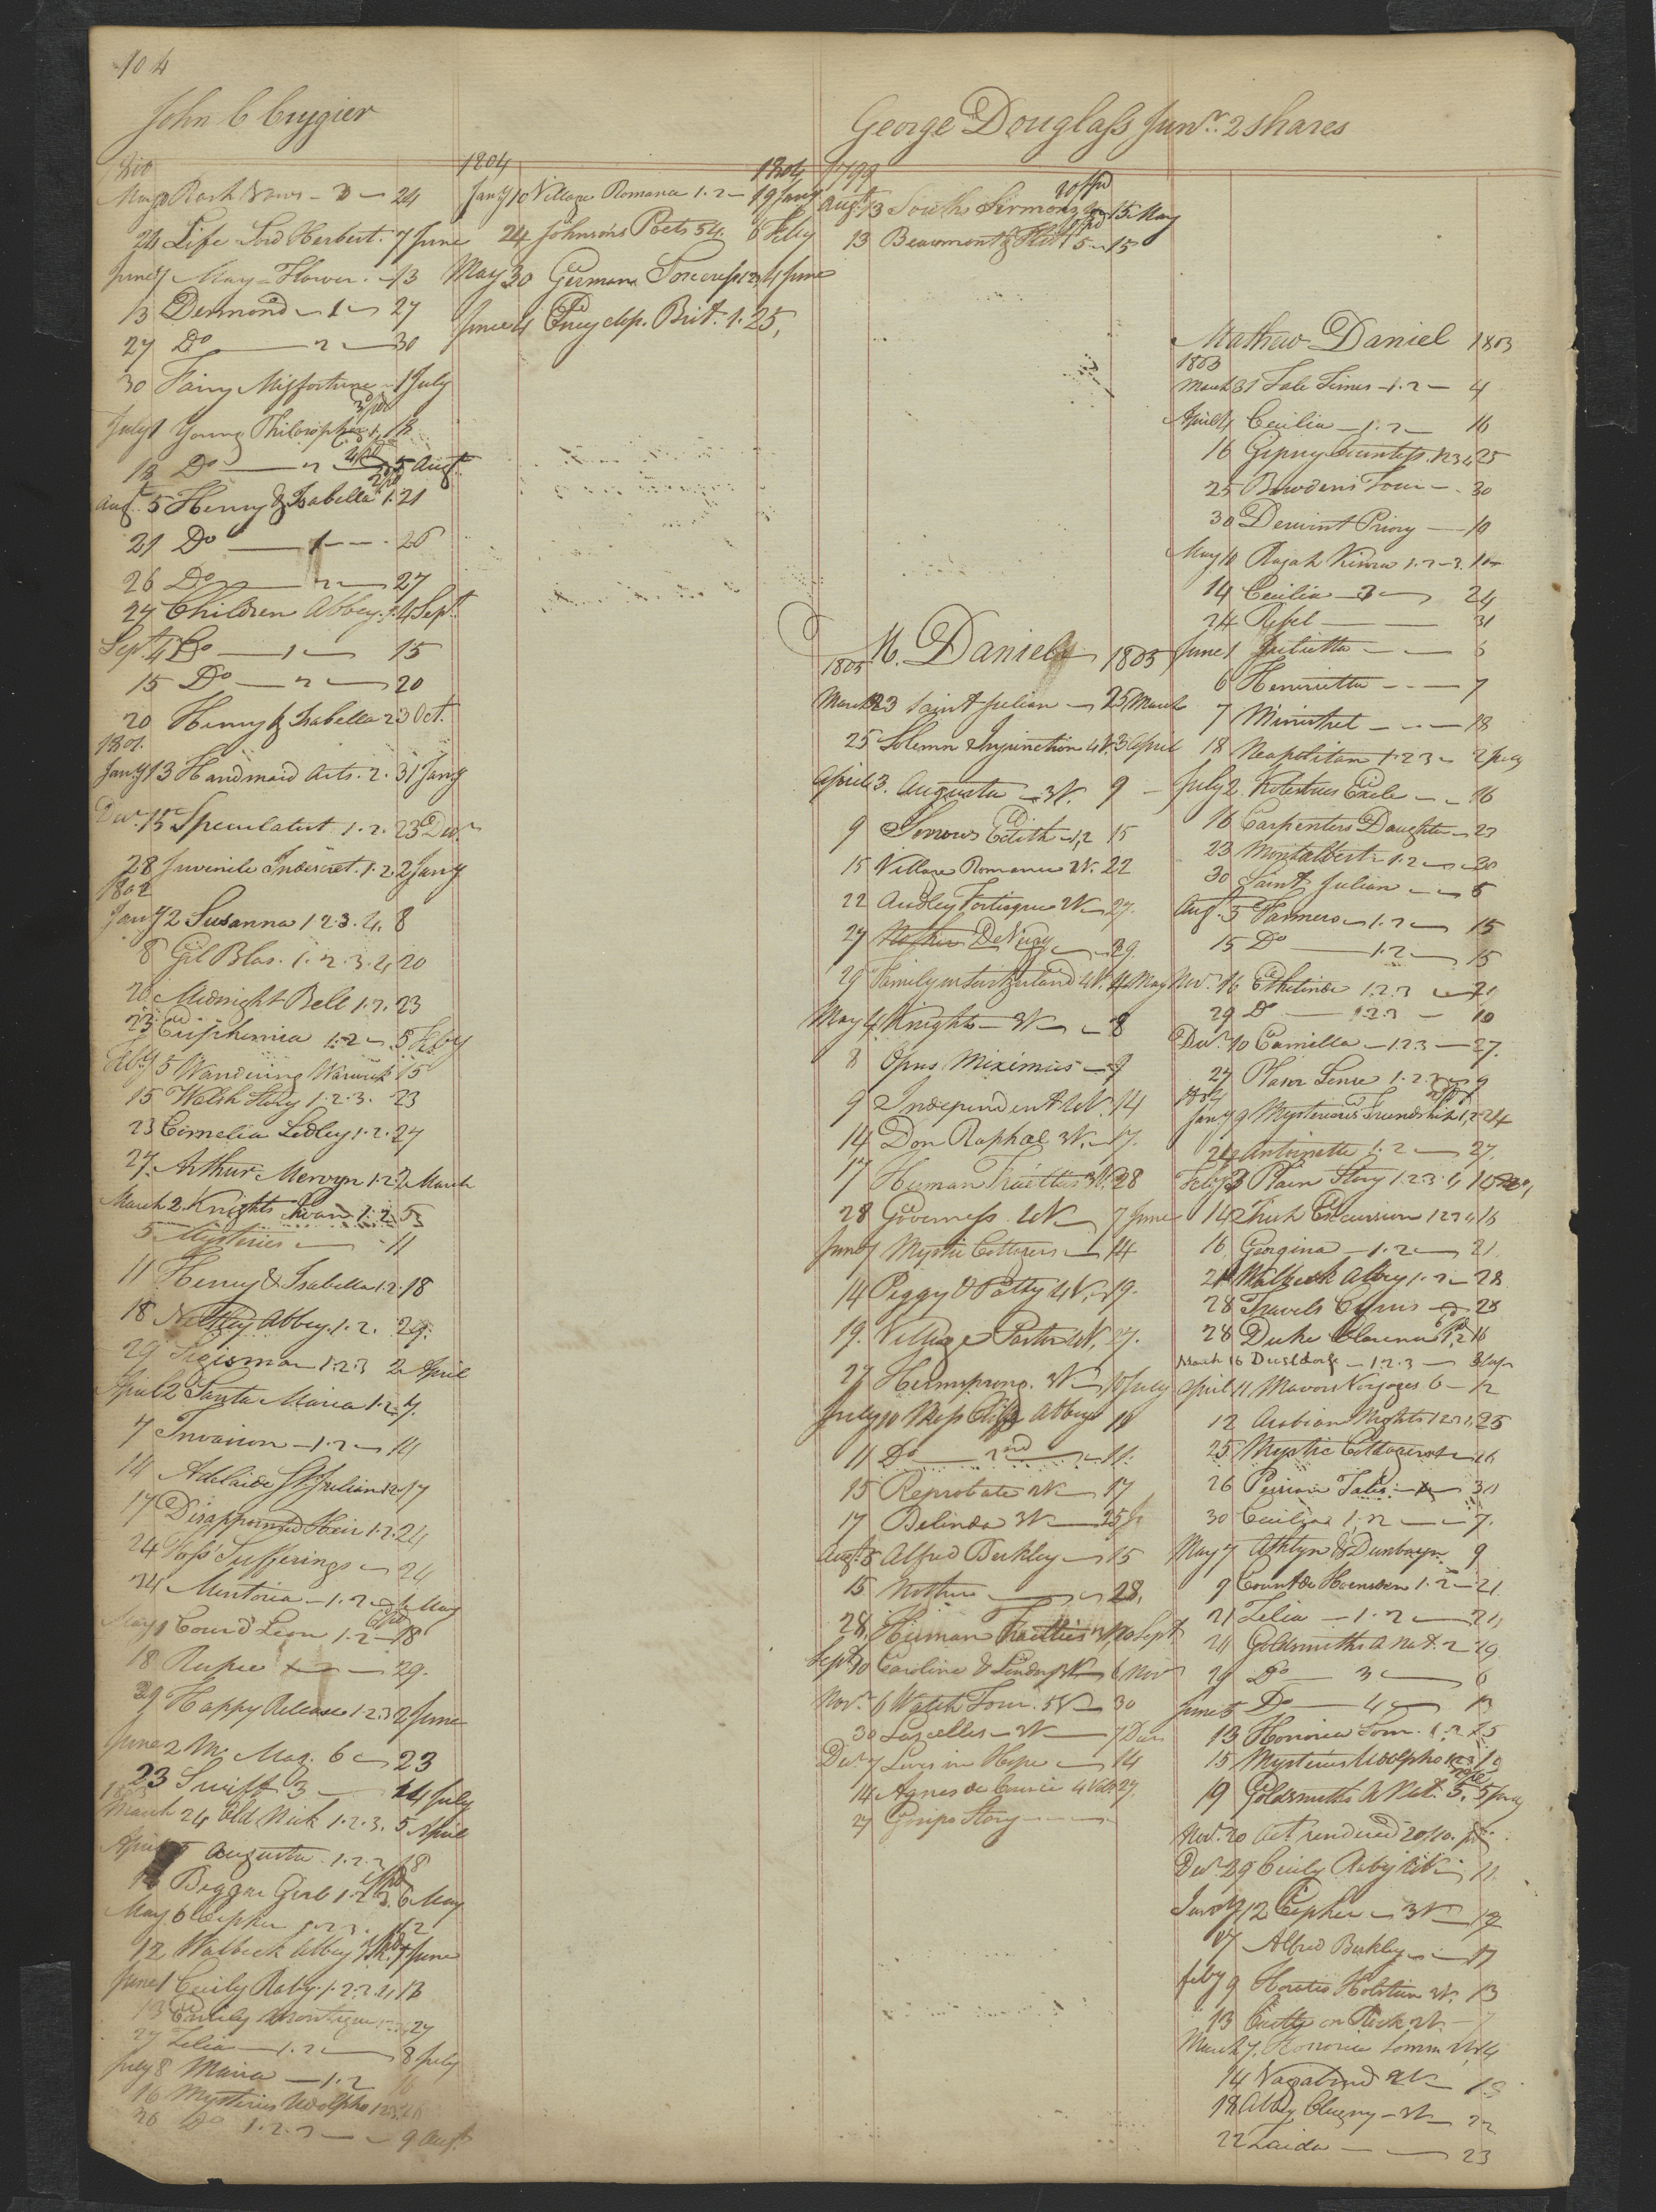 104
John C Cuyzier
1800
May 9 Rash Vows - 3 - 24
24 Life Lord Herbert. 7 June
June 7 May-Flower. - 13
13 Desmond - 1 - 27
27 Do - 2 - 30
30 Fairy Misfortune - 1 July
July 1 Young Philosopher 1, 18
18 Do - 2 - 5 Augt
Augt 5 Henry & Isabella 1. 21
21 Do - 1 - 26
26 Do - 2 - 27
27 Children Abbey. 4 Sept
Sept. 4 Do - 1 - 15
15 Do - 2 - 20
20 Henry & Isabella 2 3 Oct.
1801.
Jany 13 Handmaid Arts. 2. 31 Jany
Decr. 15 Speculatist 1.2. 23 Decr
28 Juvenile Indiscret. 1.2 2 Jany
1802
Jany 2 Susanna 1 2.3.4. 8
8 Gil Blas. 1.2.3.4 20
20 Midnight Bell 1.2. 23
23 Euphemia 1.2 - 5 Feby
Feby 5 Wandering Warwick 15
15 Walsh Story 1.2.3. 23
23 Cornelia Sedley 1.2. 27
27. Arthur Mervyn 1.2 2 March
March 2. Knights Swan 1.2 5
5 Mysteries - 11
11 Henry & Isabella 1.2. 18
18 Netley Abbey. 1.2. 29.
29 Sicisman 1.2 3 2 April
April 2 Santa Maria 1.2. 7.
7 Invasion - 1.2 - 14
14 Adelaide St. Julian 1 2 17
17 Disappointed Heir 1.2. 24
24 Sufferings - 24
24 Mentoria - 1.2 - May
May 1 Cour'd Leon 1.2 - 18
18 Rupee - 29.
29 Happy Release 1.2.3 2 June
June 2 M. Mag. 6 - 23
23 Swift 3 - 14 July
1803
March 24 Old Nick 1.2.3. 5 April
April 5 Augusta. 1.2.3 18
18 Beggar Girl 1.2 3. 6 May
May 6 Cipher 1.2 3. 12
12 Walbeck Abbey 1 June
June 1 Cecily Raby. 1.2.3.4 13
13 Emily Montague 27
27 Zelia - 1.2 - 8 July
July 8 Maria - 1.2 16
16 Mysteries Udolpho 1 2 3.
20 Do 1.2.3 - 9 Augt
1804 1804
Jany 10 Village Romance 1.2 - 19 Jany
24 Johnsons Poets 54. 6 Feby
May 30 German Sorceress 1 2 3 4 June
June 4 Encyclop. Brit. 1. 25,
George Douglass Junr. 2 shares
1799
Augt. 13 South Sermons 15 May
13 Beaumont & Flet 5 - 15
M. Daniel 1805
1805
March 23 Saint Julian - 25 March
25 Solemn Injunction 4 V. 3 April
April 3. Augusta - 3 V. 9 -
9 Sorrows Edith - 1,2 15
15 Village Romance 2 V. 22
22 Audley Fortisque 2 V - 27.
27 De Nijay - 29.
29 Family in Switzerland 4 V. 4 May
May 4. Knights - 3 V - 8
8 Opus Miximus - 9
9 Independent 2 V. 14
14 Don Raphael 3 V. - 17.
17 Human Frailties 3 V. 28
28 Governess. 2 V - 7 June
June 7 Mystic Cottagers - 14
14 Peggy & Patty 4 V. - 19.
19. Village Pastor 2 V. 27.
27 Hermsprong. 3 V - 10 July
July 10 Abbey 11
11 Do - 2nd - 11.
15 Reprobate 2 V - 17
17 Belinda 3 V - 25
Augt. 8 Alfred Berkley - 15
15 Mother - 28.
28. Human Frailties 10 Sept.
Sept. 10 Caroline & Lindorf 3 V - 6 Nov
Novr. 6 Walsh Tour. 5 V - 30
30 Lascelles - 3 V - 7 Decr
Decr 7 Lives in Hope - 14
14 Agnes de Courcie 4 Vols 27.
27 Gossips Story - -
Mathew Daniel 1803
1803
March 31 Tale Times - 1.2 - 4
April 4 Cecilia - 1.2 - 16
16 Gipsy Countess. 1 2 3 4 25
25 Bowdens Tour - 30
30 Derwint Priory - 10
May 10 Rajah Kisna 1.2-3. 14
14 Cecilia - 3 - 24
24 Ressel - - 31
June 1 Julietta - - 6
6 Henrietta - - 7
7 Minstrel - - 18
18 Neapolitan 1.2 3 - 2 July
July 2. Exile - - 16
16 Carpenters Daughter - 23
23 Montalbert - 1.2 - 30
30 Saint Julian - - 5
Aug. 5 Farmers - 1.2 - 15
15 Do - 1.2 - 15
Novr. 16 Ethelinde 1.2.3 - 29
29 Do - 1.2.3 - 10
Decr. 10 Camilla - 1.2 3 - 27.
27 Plain Sense 1.2.3 - 9
1804
Jany 9 Mysterious Friendship 1,2 24
24 Antoinette 1.2 - 27.
Feby 3 Plain Story 1.2 3.4 10
14 Irish Excursion 1 2 3 4 16
16 Georgina - 1.2 - 21.
21 Walbeck Abbey 1.2 - 28
28 Travels Cyrus - 28
28 Duke Clarence 1,2 16
March 16 Dusseldorf - 1.2.3 -
April 11 Mavors Voyages 6 - 12
12 Arabian Nights 1 2 3 4 25
25 Mystic Cottagers - 26
26 Persian Tales - 30
30 Cecilia 1,2 - - 7.
May 7 Athlyn & Dunbayn. 9
9 Count de Hoensden 1.2 - 21
21 Zelia - 1.2 - 24
24 Goldsmiths A Nat. 2 29
29 Do - 3 - 6
June 5 Do - 4 - 13
13 Honoria Som. 1.2 15
15 Mysteries Udolpho 1 2 3 19
19 Goldsmiths A Nat. 5. 5 July
Novr. 20 Act rendered 20/10.
Decr. 29 Cecily Raby 4 V - 11.
12 Cipher - 3 V - 17
17 Alfred Berkley - - 17
Feby 9 Horatio Holstein 3 V. 13
13 Castle on Rock 3 V. - 7
March 7. Honoria Somm 2 V. 14
14 Vagabond 2 V - 18
18 Abbey Clugny - 3 V - 22
22 Zaida - - 23